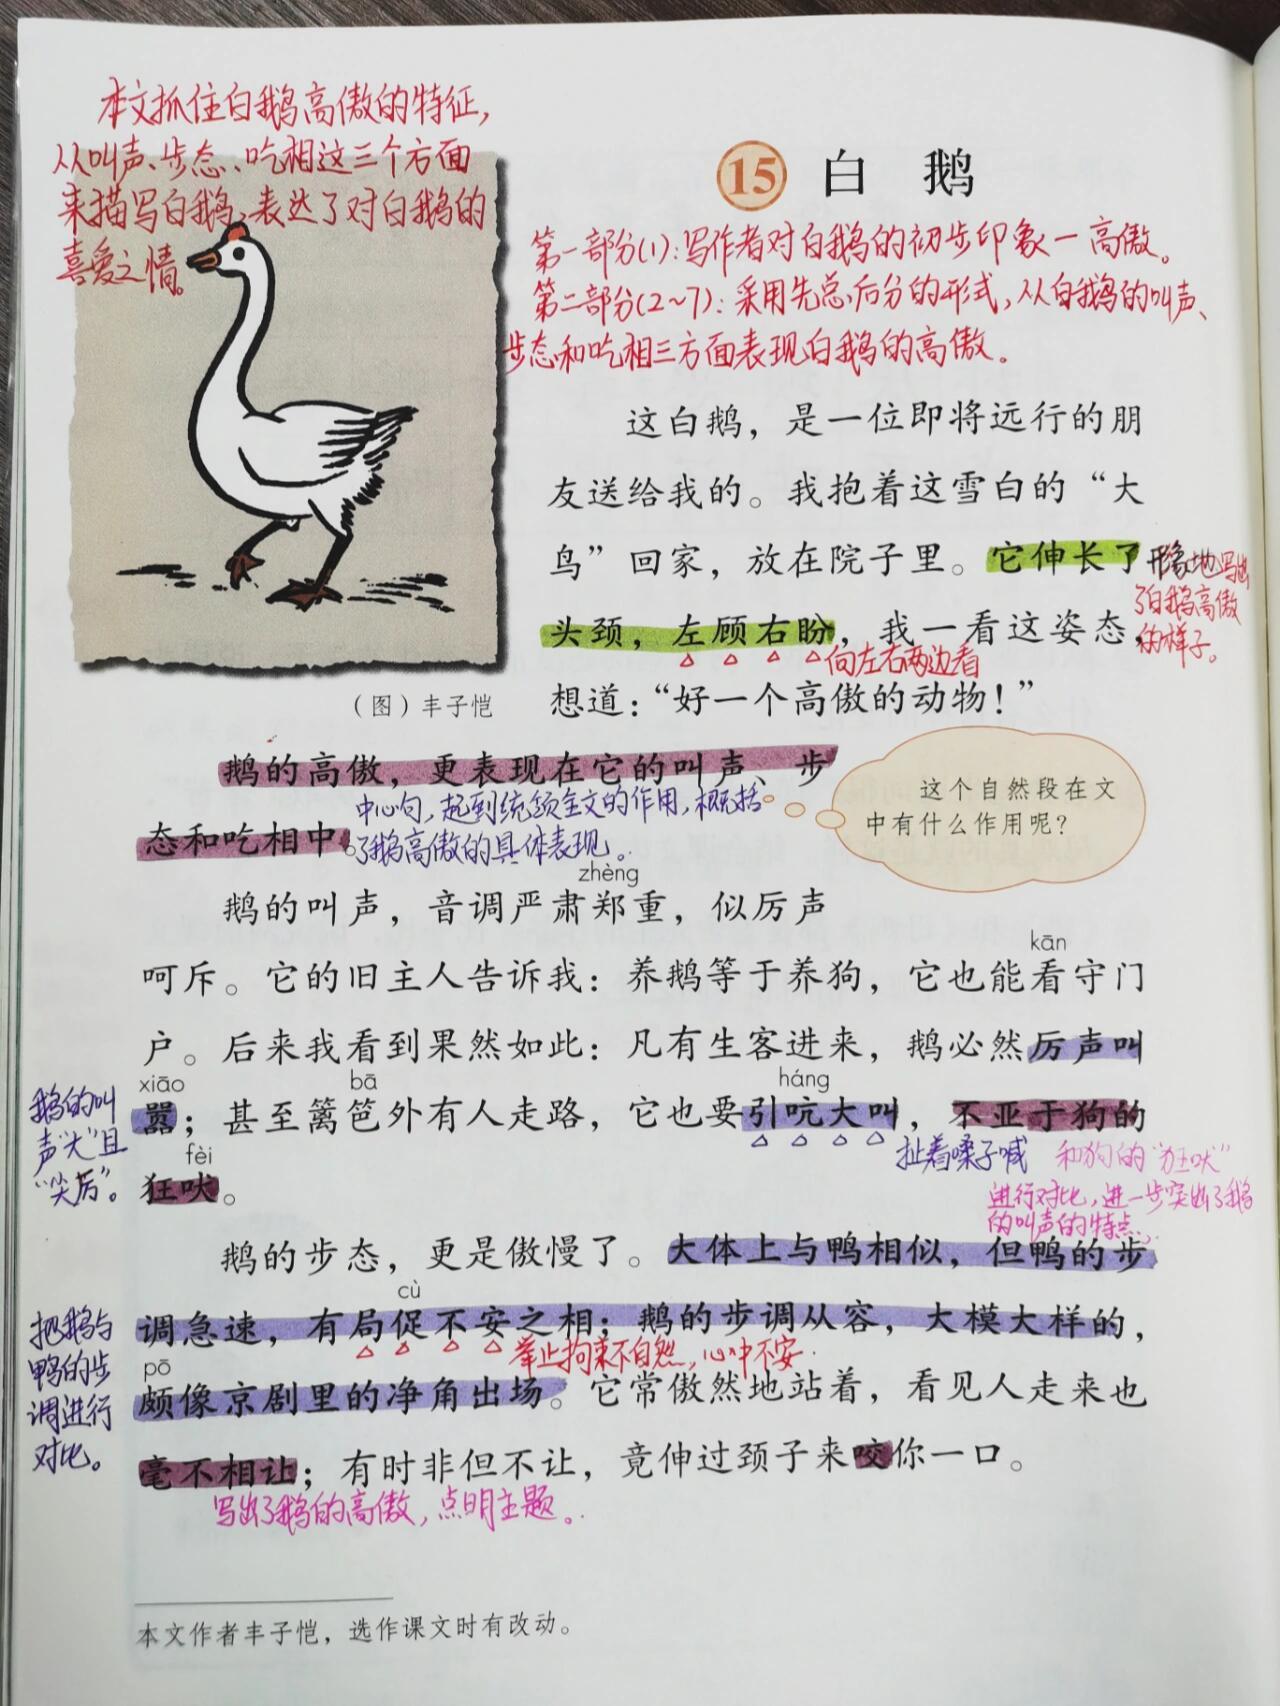 本文抓住白鹅高傲的特征，
从叫声、步态、吃相这三个方面
来描写白鹅，表达了对白鹅的
喜爱之情。
15 白 鹅
第一部分(1)：写作者对白鹅的初步印象—高傲。
第二部分(2~7)：采用先总后分的形式，从白鹅的叫声、
步态和吃相三方面表现白鹅的高傲。
这白鹅，是一位即将远行的朋
友送给我的。我抱着这雪白的“大
鸟”回家，放在院子里。它伸长了
形象地写出
了白鹅高傲
的样子。
头颈，左顾右盼，我一看这姿态，
向左右两边看
想道：“好一个高傲的动物！”
（图）丰子恺
鹅的高傲，更表现在它的叫声、步
中心句，起到统领全文的作用，概括
态和吃相中。
了鹅高傲的具体表现。
这个自然段在文
中有什么作用呢？
zhèng
鹅的叫声，音调严肃郑重，似厉声
kān
呵斥。它的旧主人告诉我：养鹅等于养狗，它也能看守门
户。后来我看到果然如此：凡有生客进来，鹅必然厉声叫
xiāo bā háng
嚣；甚至篱笆外有人走路，它也要引吭大叫，不亚于狗的
鹅的叫
声“大”且
“尖厉”。
扯着嗓子喊
和狗的“狂吠”
进行对比，进一步突出了鹅
的叫声的特点。
fèi
狂吠。
鹅的步态，更是傲慢了。大体上与鸭相似，但鸭的步
cù
调急速，有局促不安之相；鹅的步调从容，大模大样的，
举止拘束不自然，心中不安.
把鹅与
鸭的步
调进行
对比。
pō
颇像京剧里的净角出场。它常傲然地站着，看见人走来也
毫不相让；有时非但不让，竟伸过颈子来咬你一口。
写出了鹅的高傲，点明主题。
本文作者丰子恺，选作课文时有改动。